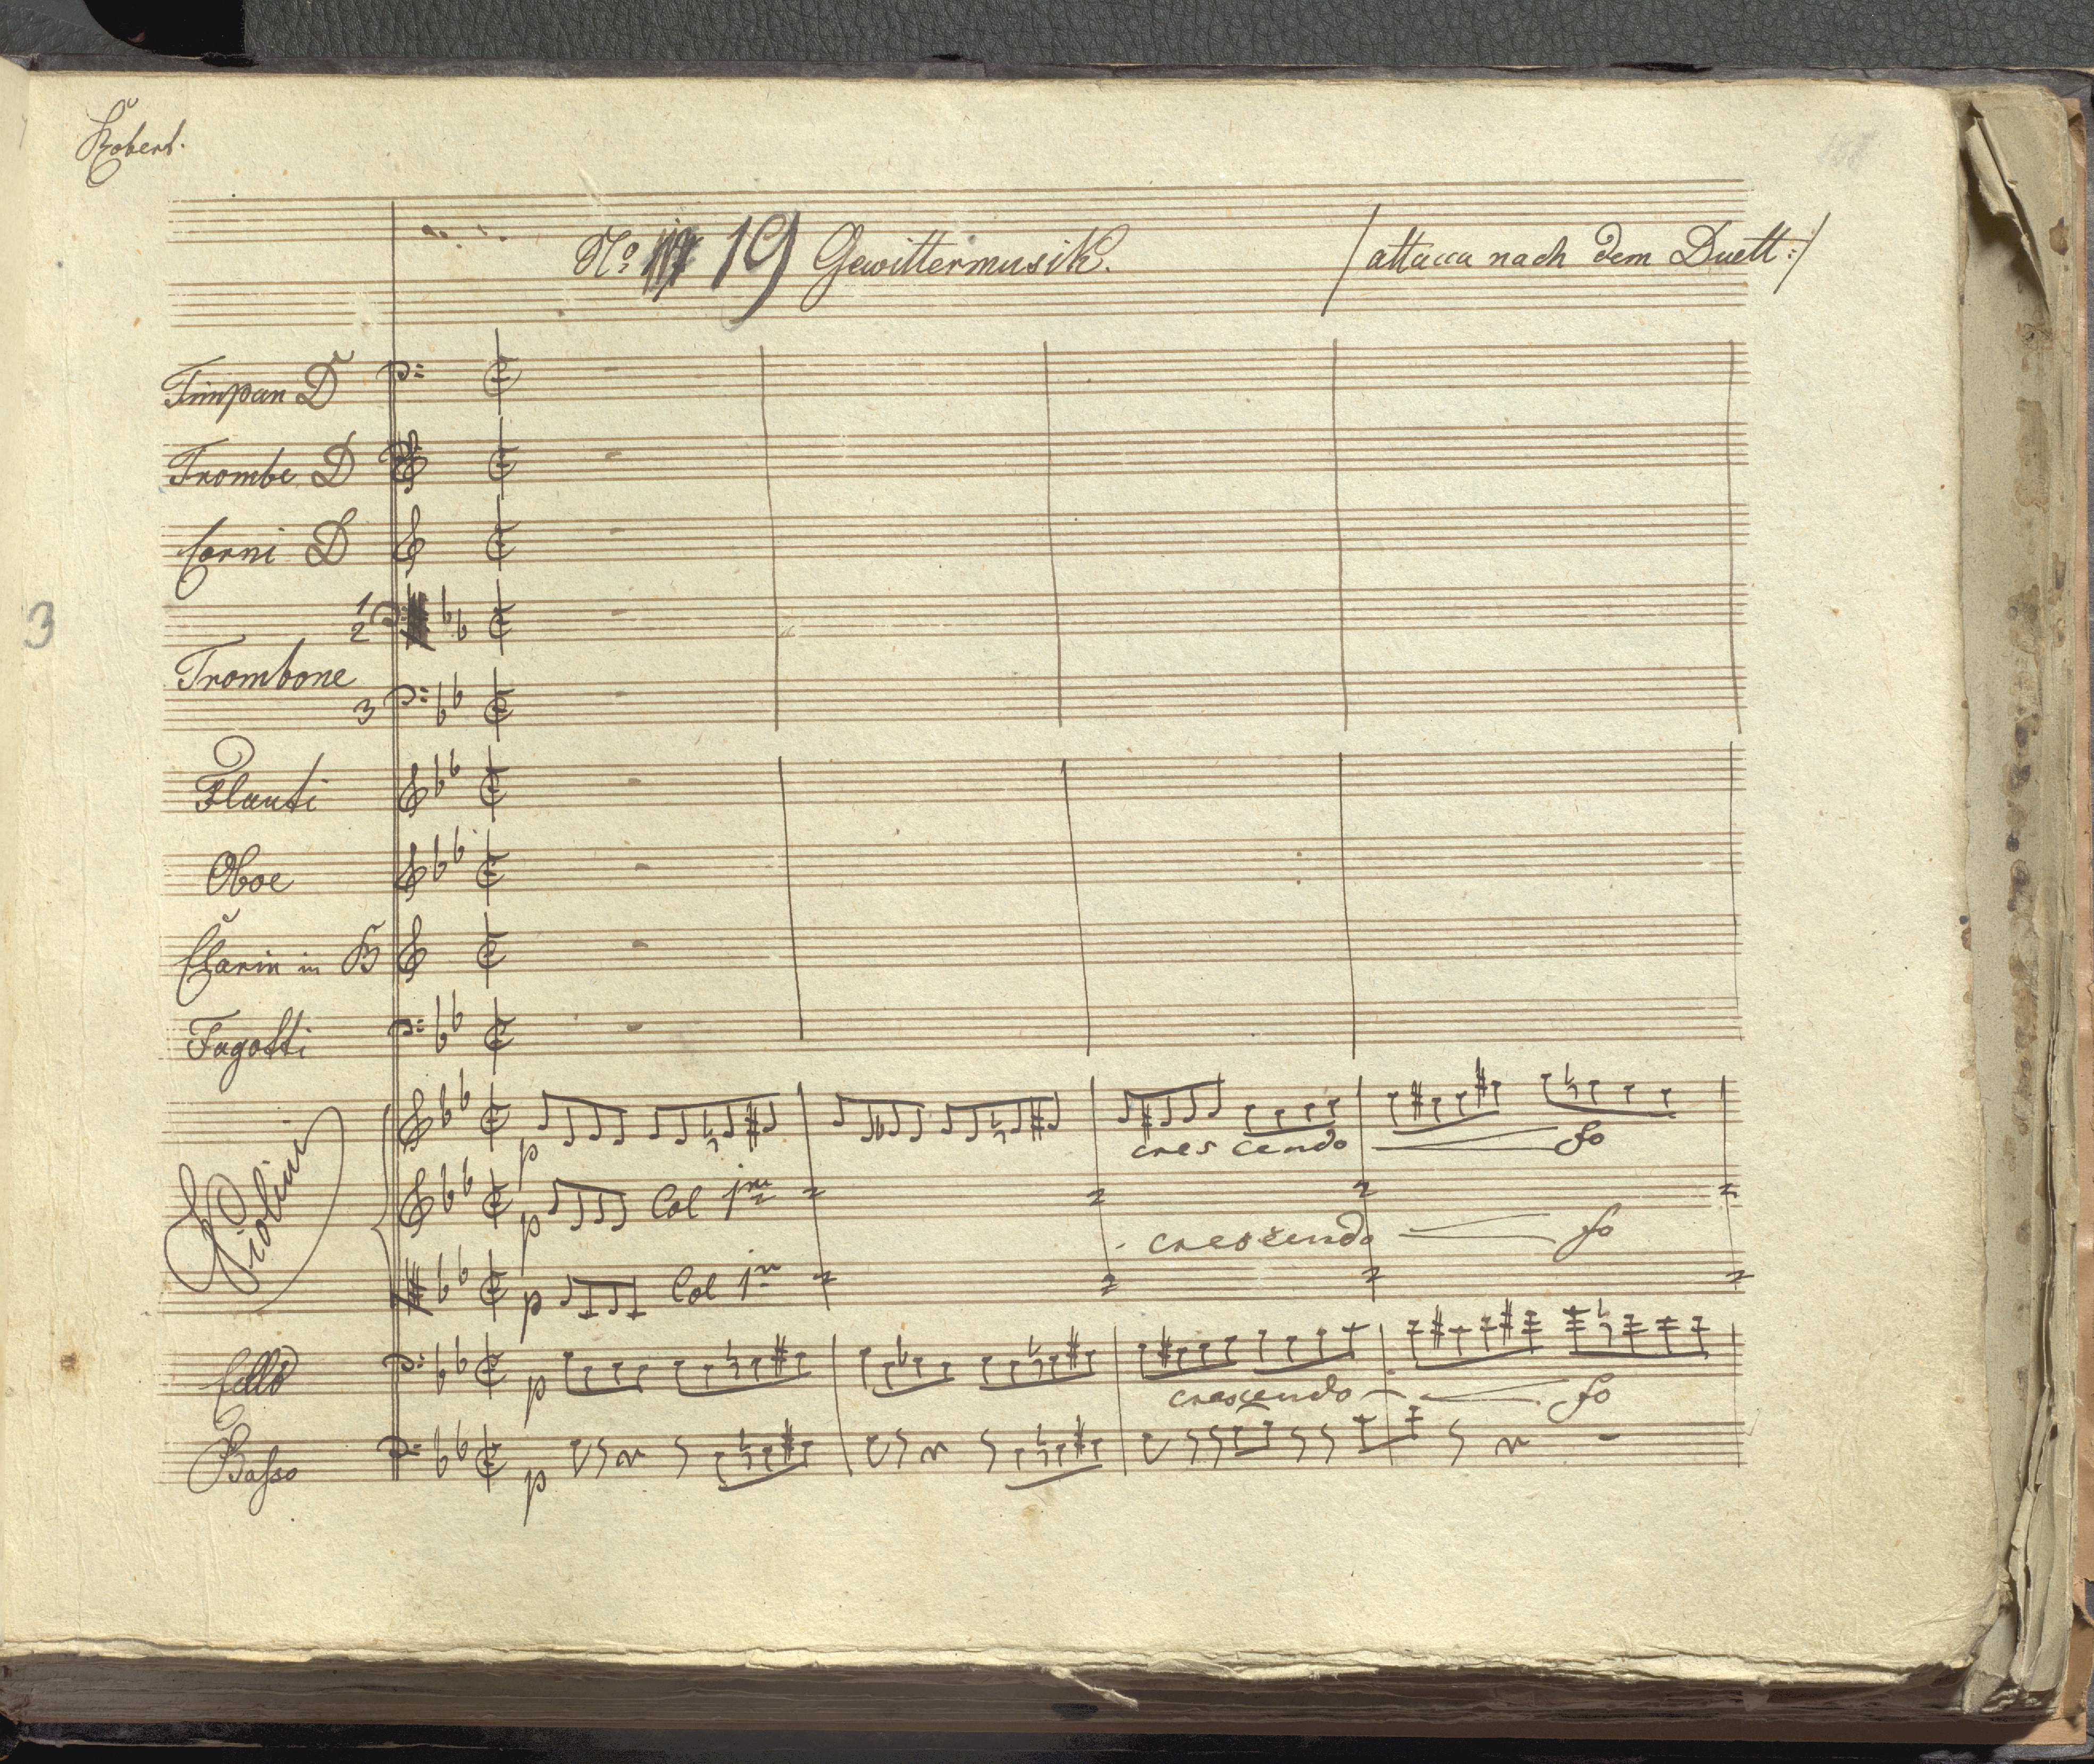 Robert.
No: 19 Gewittermusik. /attacca nach dem Duett:/
Timpan D
Trombe D
Corni D
1
2
3
Trombone
3
Flauti
Oboe
Clarin in B
Fagotti
Violini
p
cres cendo fo
p Col 1mo
crescendo fo
p Col 1mo
Cello
p
crescendo fo
Basso
p